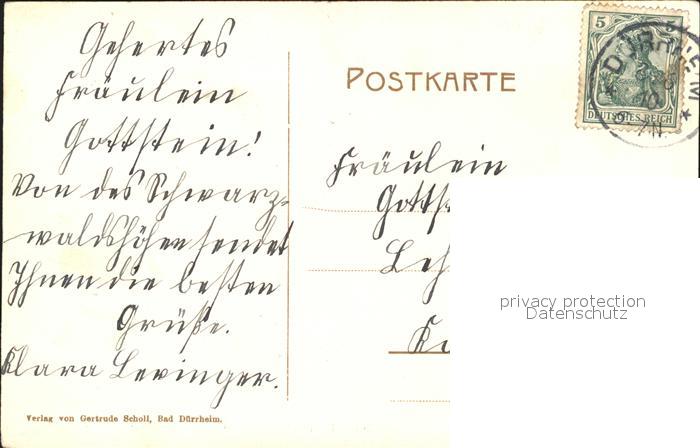 Gehertes
Fräulein
Gottstein!
Von des Schwarz-
waldshöhen sendet
Ihnen die besten
Grüße.
Klara Levinger.
Verlag von Gertrude Scholl, Bad Dürrheim.
POSTKARTE
5
DEUTSCHES REICH
DÜRRHEIM
Fräulein
Gotts
Leh
K
privacy protection
Datenschutz